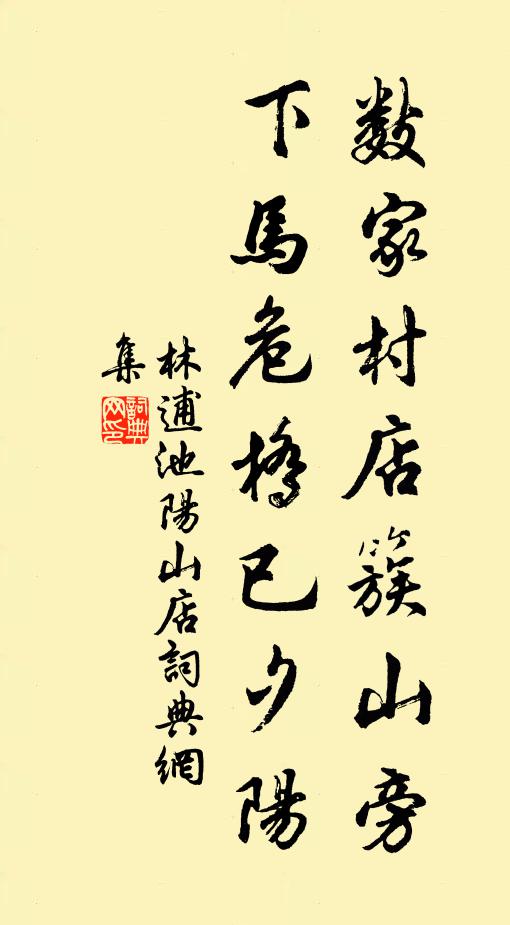 數家村店簇山旁
下馬危橋已夕陽
林逋池陽山店詞典網
集
詞典
网印